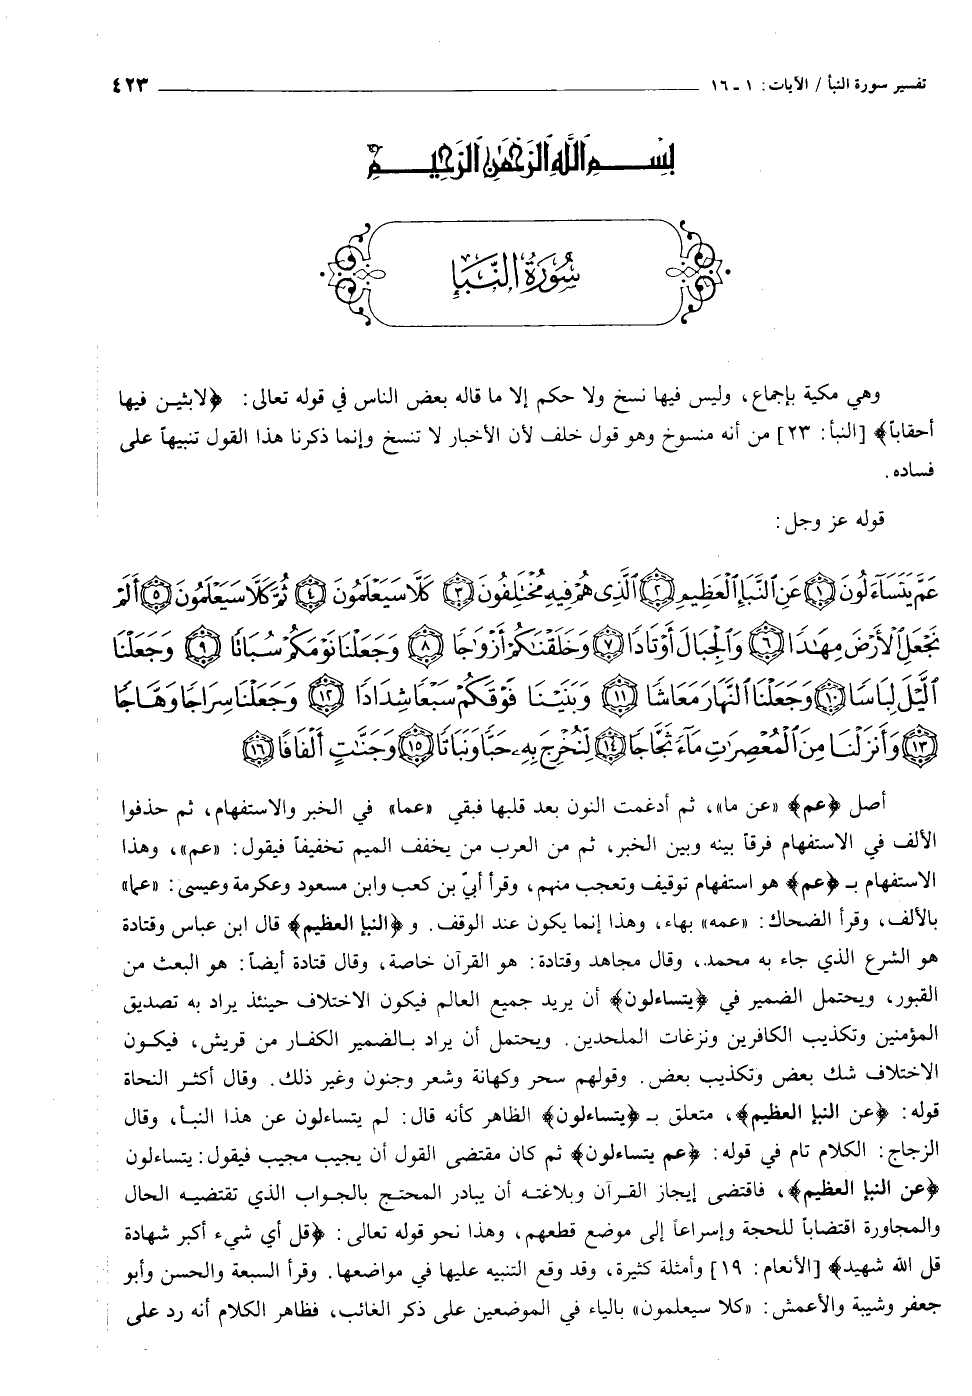 تفسير سورة النبأ / الآيات: ١ ـ ١٦ ٤٢٣
بسم الله الرحمن الرحيم
سورة النبإ
وهي مكية بإجماع، وليس فيها نسخ ولا حكم إلا ما قاله بعض الناس في قوله تعالى: ﴿لابثين فيها
أحقاباً﴾ [النبأ: ٢٣] من أنه منسوخ وهو قول خلف لأن الأخبار لا تنسخ وإنما ذكرنا هذا القول تنبيهاً على
فساده.
قوله عز وجل:
عَمَّ يَتَسَآءَلُونَ ﴿١﴾ عَنِ ٱلنَّبَإِ ٱلْعَظِيمِ ﴿٢﴾ ٱلَّذِى هُمْ فِيهِ مُخْتَلِفُونَ ﴿٣﴾ كَلَّا سَيَعْلَمُونَ ﴿٤﴾ ثُمَّ كَلَّا سَيَعْلَمُونَ ﴿٥﴾ أَلَمْ
نَجْعَلِ ٱلْأَرْضَ مِهَٰدًا ﴿٦﴾ وَٱلْجِبَالَ أَوْتَادًا ﴿٧﴾ وَخَلَقْنَٰكُمْ أَزْوَٰجًا ﴿٨﴾ وَجَعَلْنَا نَوْمَكُمْ سُبَاتًا ﴿٩﴾ وَجَعَلْنَا
ٱلَّيْلَ لِبَاسًا ﴿١٠﴾ وَجَعَلْنَا ٱلنَّهَارَ مَعَاشًا ﴿١١﴾ وَبَنَيْنَا فَوْقَكُمْ سَبْعًا شِدَادًا ﴿١٢﴾ وَجَعَلْنَا سِرَاجًا وَهَّاجًا
﴿١٣﴾ وَأَنزَلْنَا مِنَ ٱلْمُعْصِرَٰتِ مَآءً ثَجَّاجًا ﴿١٤﴾ لِّنُخْرِجَ بِهِۦ حَبًّا وَنَبَاتًا ﴿١٥﴾ وَجَنَّٰتٍ أَلْفَافًا ﴿١٦﴾
أصل ﴿عم﴾ «عن ما»، ثم أدغمت النون بعد قلبها فبقي «عما» في الخبر والاستفهام، ثم حذفوا
الألف في الاستفهام فرقاً بينه وبين الخبر، ثم من العرب من يخفف الميم تخفيفاً فيقول: «عم»، وهذا
الاستفهام بـ ﴿عم﴾ هو استفهام توقيف وتعجب منهم، وقرأ أبيّ بن كعب وابن مسعود وعكرمة وعيسى: «عما»
بالألف، وقرأ الضحاك: «عمه» بهاء، وهذا إنما يكون عند الوقف. و ﴿النبإ العظيم﴾ قال ابن عباس وقتادة
هو الشرع الذي جاء به محمد، وقال مجاهد وقتادة: هو القرآن خاصة، وقال قتادة أيضاً: هو البعث من
القبور، ويحتمل الضمير في ﴿يتساءلون﴾ أن يريد جميع العالم فيكون الاختلاف حينئذ يراد به تصديق
المؤمنين وتكذيب الكافرين ونزغات الملحدين. ويحتمل أن يراد بالضمير الكفار من قريش، فيكون
الاختلاف شك بعض وتكذيب بعض. وقولهم سحر وكهانة وشعر وجنون وغير ذلك. وقال أكثر النحاة
قوله: ﴿عن النبإ العظيم﴾، متعلق بـ ﴿يتساءلون﴾ الظاهر كأنه قال: لم يتساءلون عن هذا النبأ، وقال
الزجاج: الكلام تام في قوله: ﴿عم يتساءلون﴾ ثم كان مقتضى القول أن يجيب مجيب فيقول: يتساءلون
﴿عن النبإ العظيم﴾، فاقتضى إيجاز القرآن وبلاغته أن يبادر المحتج بالجواب الذي تقتضيه الحال
والمجاورة اقتضاباً للحجة وإسراعاً إلى موضع قطعهم، وهذا نحو قوله تعالى: ﴿قل أي شيء أكبر شهادة
قل الله شهيد﴾ [الأنعام: ١٩] وأمثلة كثيرة، وقد وقع التنبيه عليها في مواضعها. وقرأ السبعة والحسن وأبو
جعفر وشيبة والأعمش: «كلا سيعلمون» بالياء في الموضعين على ذكر الغائب، فظاهر الكلام أنه رد على